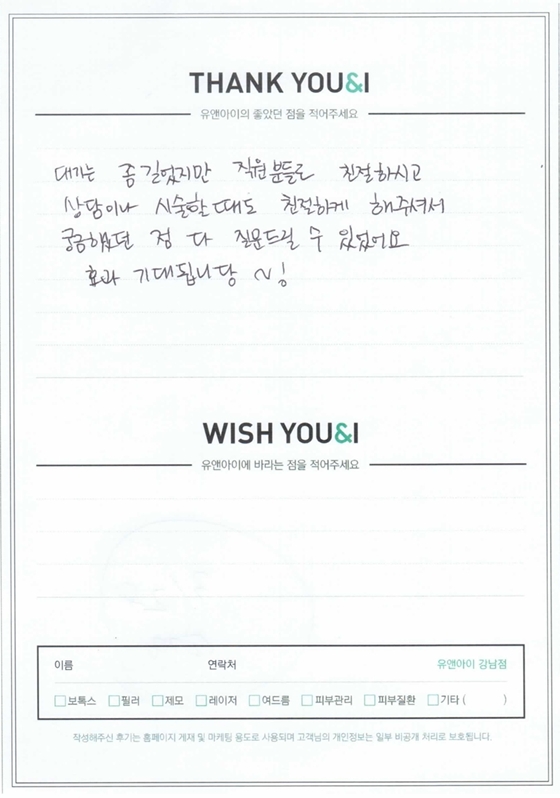 THANK YOU&I
유앤아이의 좋았던 점을 적어주세요
대기는 좀 길었지만 직원분들도 친절하시고
상담이나 시술할때도 친절하게 해주셔서
궁금했던 점 다 질문드릴 수 있었어요
효과 기대됩니당 ~!
WISH YOU&I
유앤아이에 바라는 점을 적어주세요
이름 연락처 유앤아이 강남점
보톡스 필러 제모 레이저 여드름 피부관리 피부질환 기타 ( )
작성해주신 후기는 홈페이지 게재 및 마케팅 용도로 사용되며 고객님의 개인정보는 일부 비공개 처리로 보호됩니다.